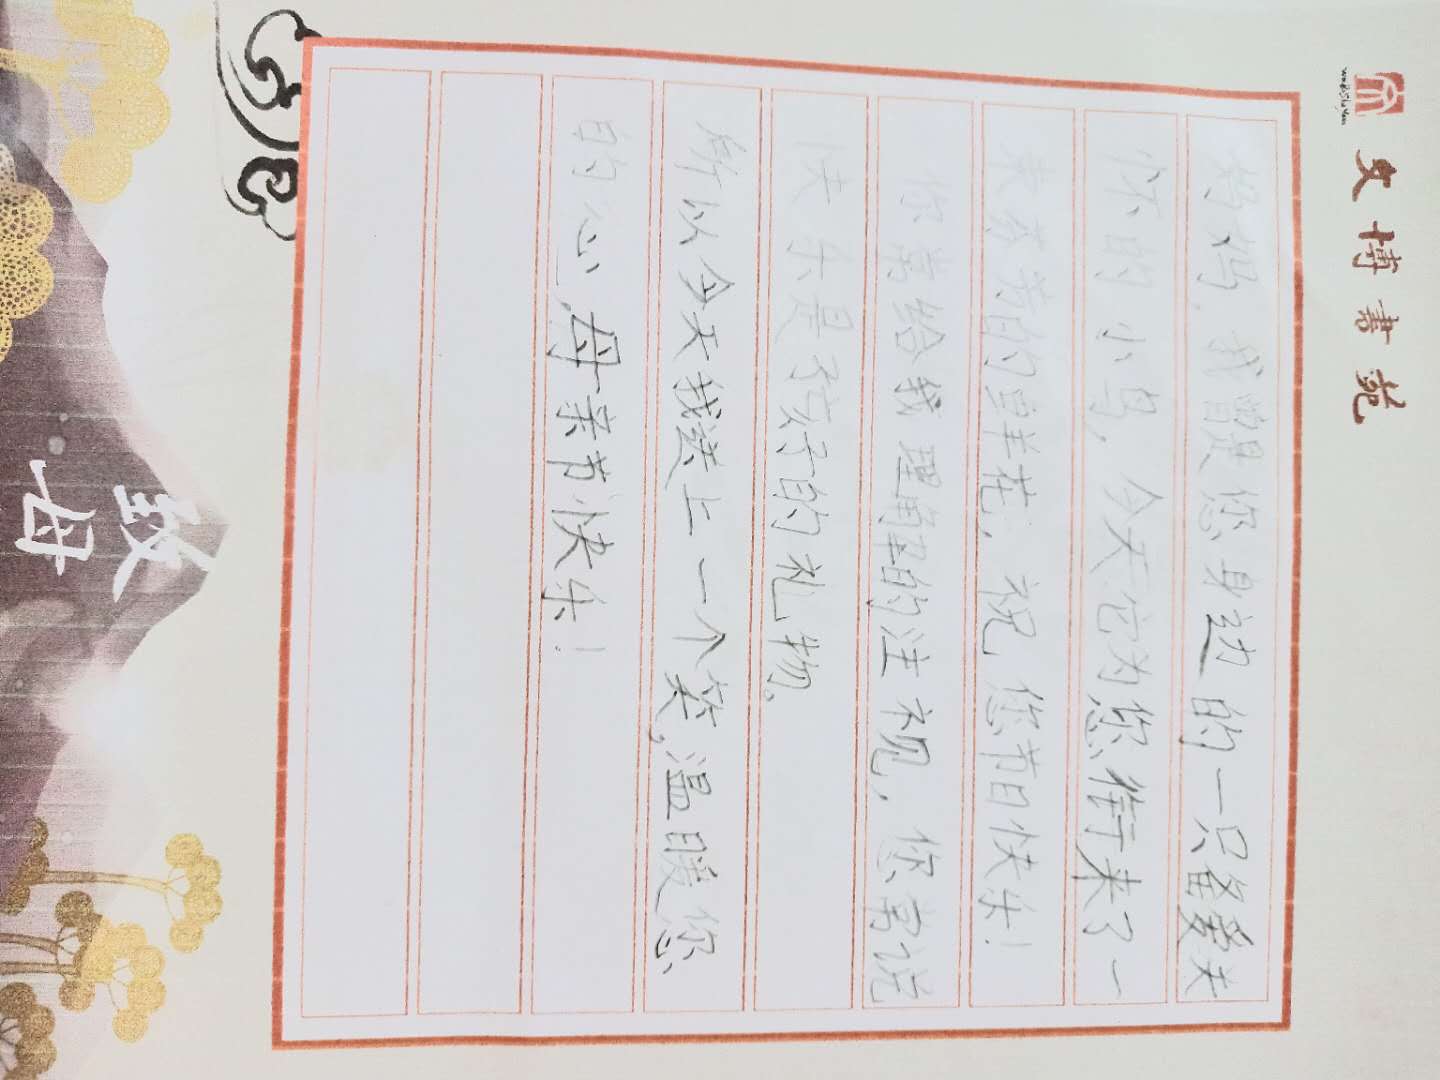 文博书苑
妈妈,我曾是您身边的一只备受关
怀的小鸟,今天它为您衔来了一
束芬芳的鲜花,祝您节日快乐!
你常给我理解的注视,你常说
快乐是孩子的礼物,
所以今天我送上一个笑,温暖您
的心,母亲节快乐!
致母